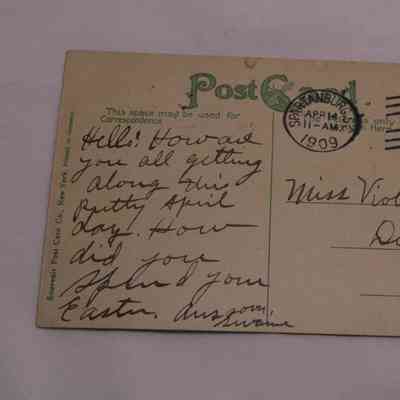 Post Card
This space may be used for
Correspondence.
SPARTANBURG
APR 14
11-AM
1909
is only
Here
Hello! How are
you all getting
along this
pretty April
day. How
did you
spend your
Easter. Ans soon,
Miss Viol
Souvenir Post Card Co., New York.